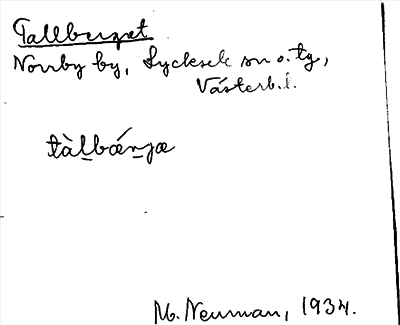 Tallberget
Norrby by, Lycksele sn o. tg,
Västerb. l.
tàl̠bǽrjæ
M. Neuman, 1934.